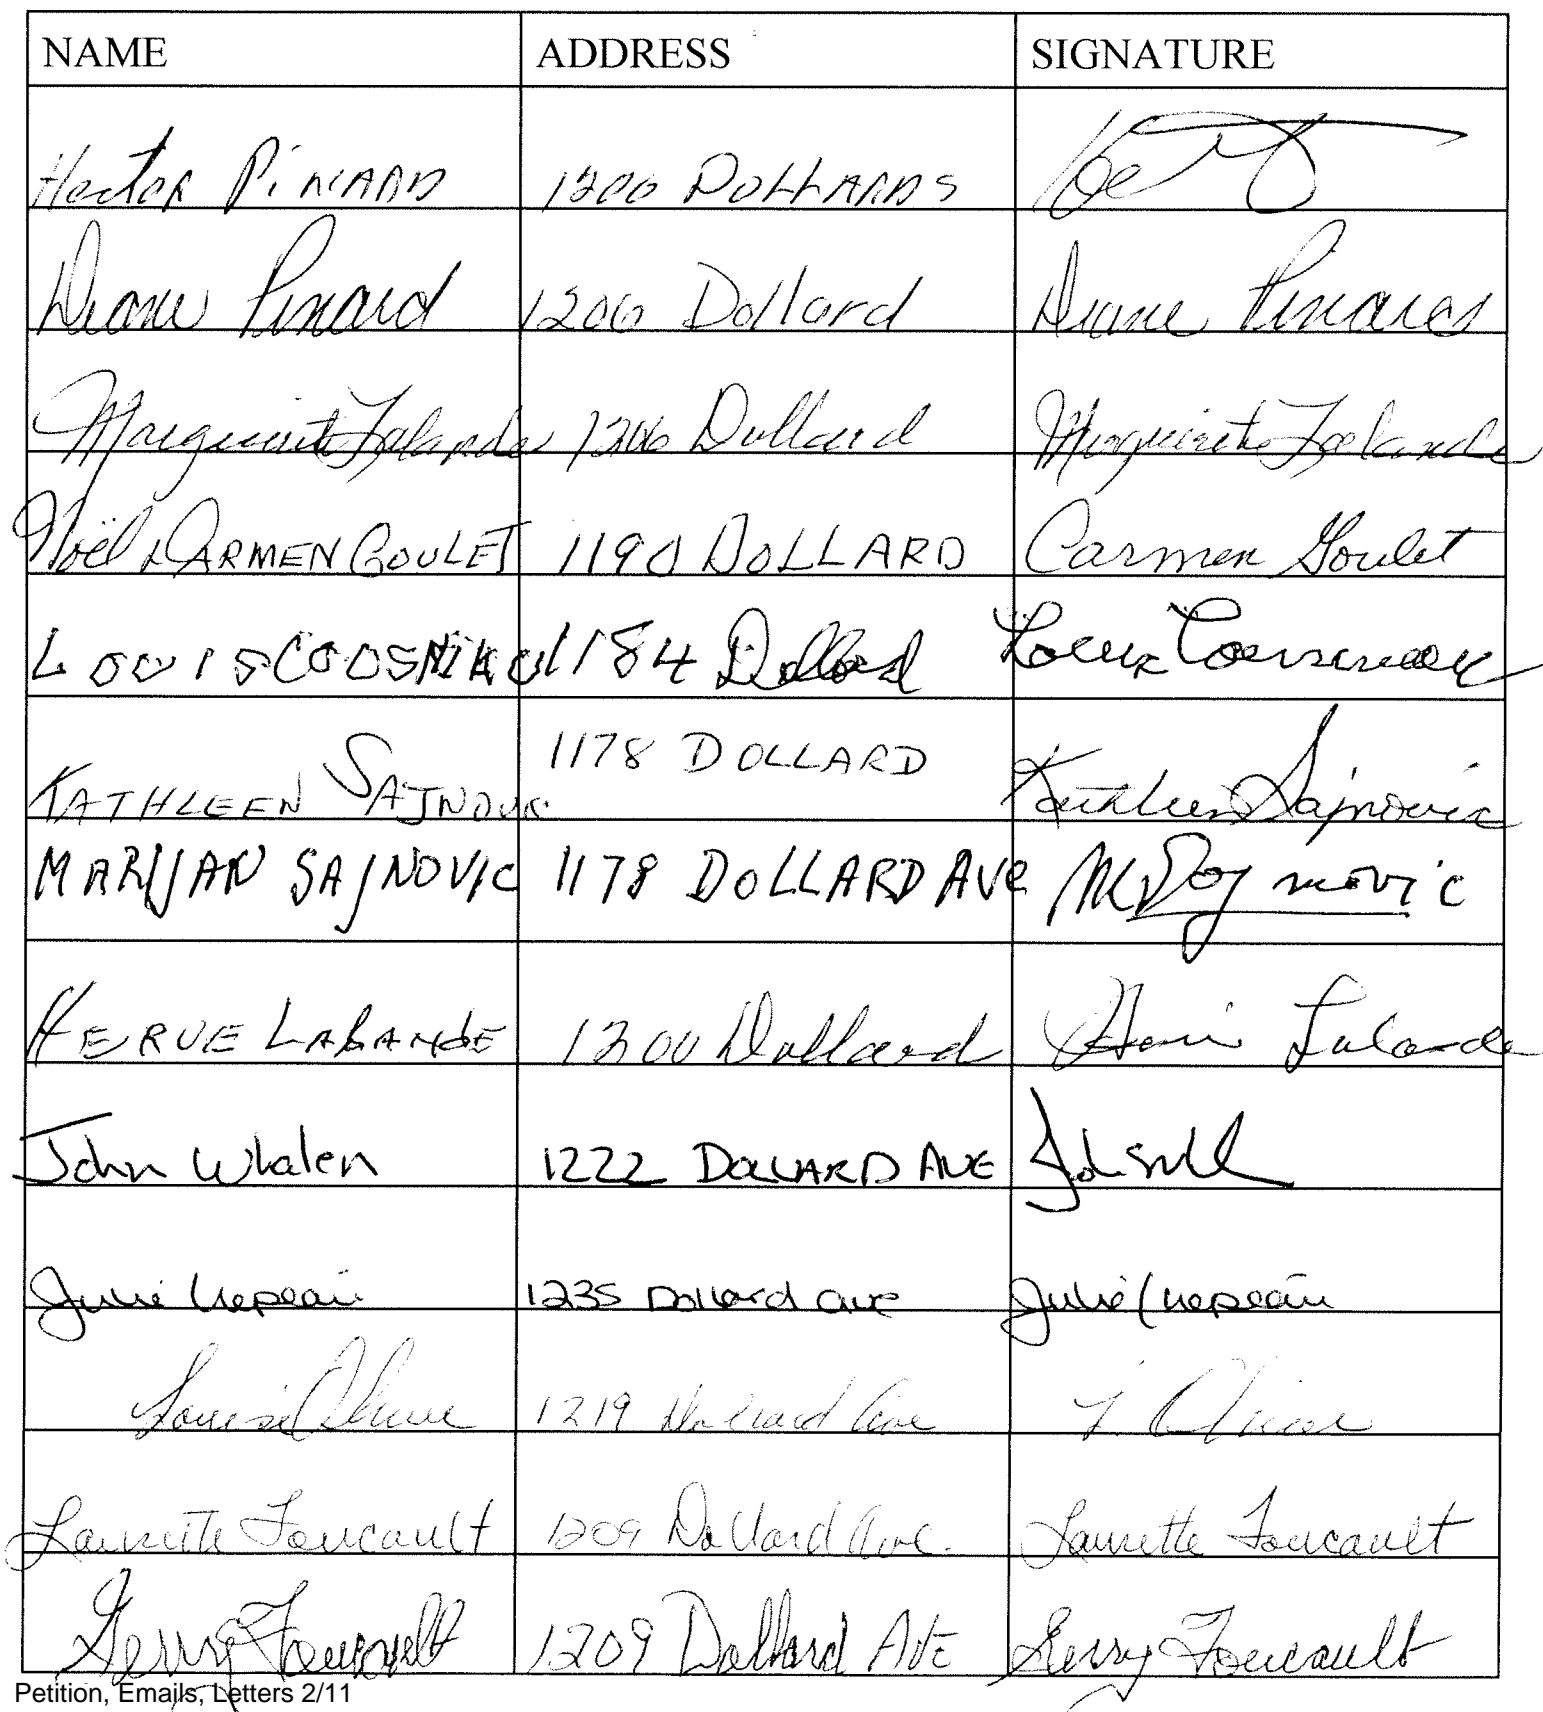 NAME ADDRESS SIGNATURE
Hector PiNARD 1206 DOLLARDS
Diane Pinard 1206 Dollard Diane Pinard
Marguerite Lalande 1206 Dollard Marguerite Lalande
Noël & CARMEN GOULET 1190 DOLLARD Carmen Goulet
LOUIS 1184 Dollard Louis
KATHLEEN SAJNOVIC 1178 DOLLARD Kathleen Sajnovic
MARIJAN SAJNOVIC 1178 DOLLARD AVe
HERVE LALANDE 1200 Dollard Lalande
John Whalen 1222 DOLLARD AVE
Julie Nepean 1235 Dollard ave Julie Nepean
Louise 1219 Dollard Ave L.
Laurette Foucault 1209 Dollard Ave. Laurette Foucault
Gerry Foucault 1209 Dollard AVE Gerry Foucault
Petition, Emails, Letters 2/11